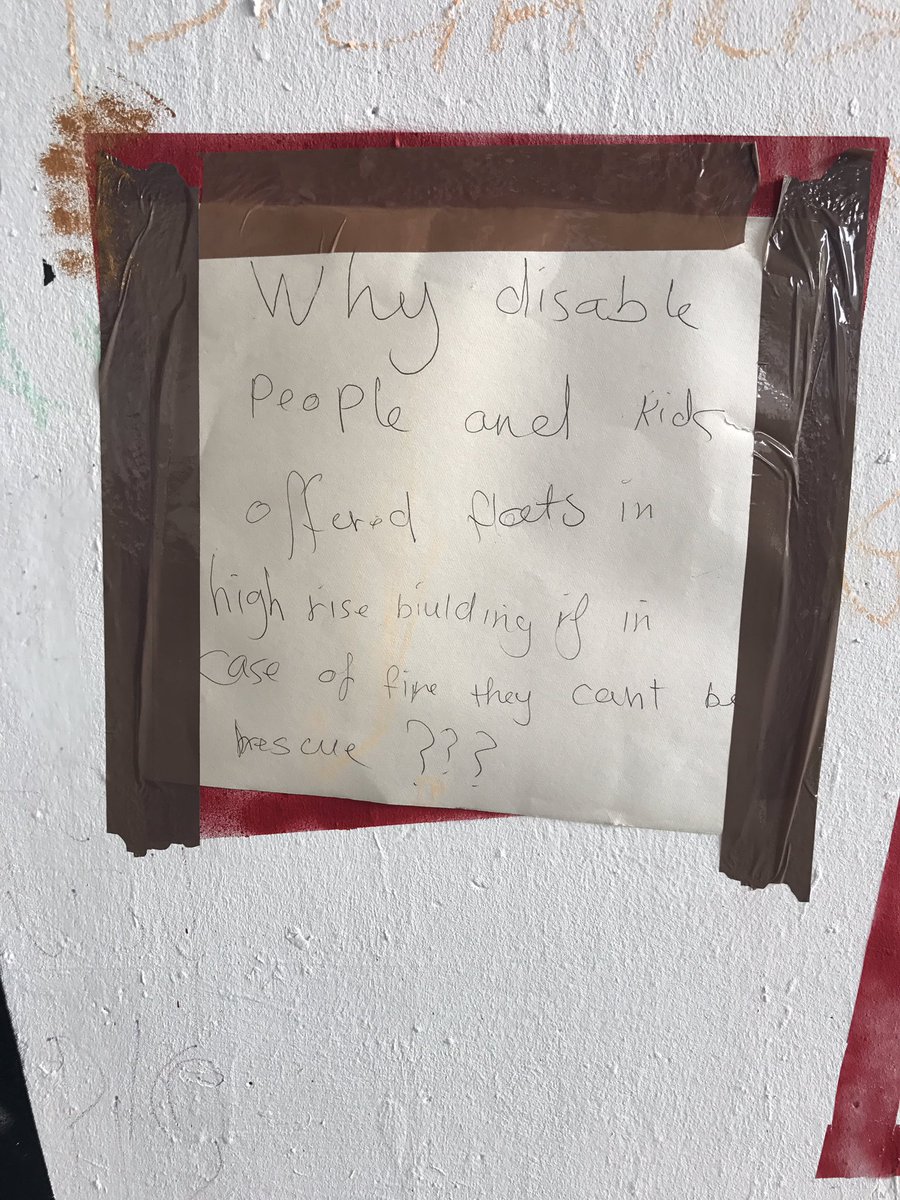 Why disable
People and kids
offered flats in
high rise biulding if in
case of fire they cant be
rescue ???